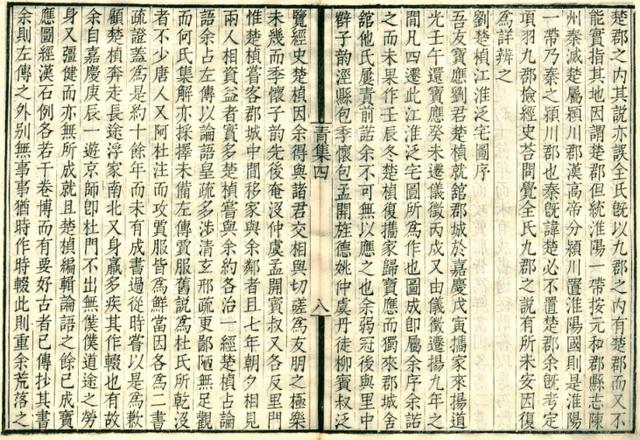 楚郡之內其說亦誤全氏旣以九郡之內有楚郡而又不
能實指其地因謂楚郡但統淮陽一帶按元和郡縣志陳
州秦滅楚屬潁川郡漢高帝分潁川置淮陽國則是淮陽
一帶乃秦之潁川郡也秦旣諱楚必不置楚郡余旣考定
項羽九郡檢經史荅問覺全氏九郡之說有所未安因復
為詳辨之
劉楚楨江淮泛宅圖序
吾友寶應劉君楚楨就館郡城於嘉慶戊寅攜家來揚道
光壬午還寶應癸未遷儀徵丙戌又由儀徵遷揚九年之
間凡四遷此江淮泛宅圖所爲作也圖成卽屬余序余諾
之而未果作壬辰冬楚楨復攜家歸寶應而獨來郡城舍
館他氏屢責前諾余不可無以應之也余弱冠後與里中
薛子韻涇縣包季懷包孟開旌德姚仲虞丹徒柳賓叔泛
覽經史楚楨因余得與諸君交相與切磋爲友朋之極樂
未幾而季懷子韻先後奄沒仲虞孟開賓叔又各反里門
惟楚楨嘗客郡城中間移家與余鄰者且七年朝夕相見
兩人相資益者實多楚楨嘗與余約各治一經楚楨占論
語余占左傳以論語皇疏多涉清玄邢疏更鄙陋無足觀
而何氏集解亦採擇未備左傳賈服舊說爲杜氏所乾沒
者不少唐人又阿杜注而攻賈服皆爲鮮當因各爲二書
疏證蓋爲是約十餘年而未有成書過從時嘗以是爲歉
顧楚楨奔走長途浮家南北又身羸多疾其作輟也有故
余自嘉慶庚辰一遊京師卽杜門不出無僕僕道途之勞
身又彊健而亦無所成就且楚楨編輯論語之餘已成寶
應圖經漢石例各若干卷博而有要好古者已傳抄其書
余則左傳之外別無事事猶時作時輟此則重余荒落之
青集四
八